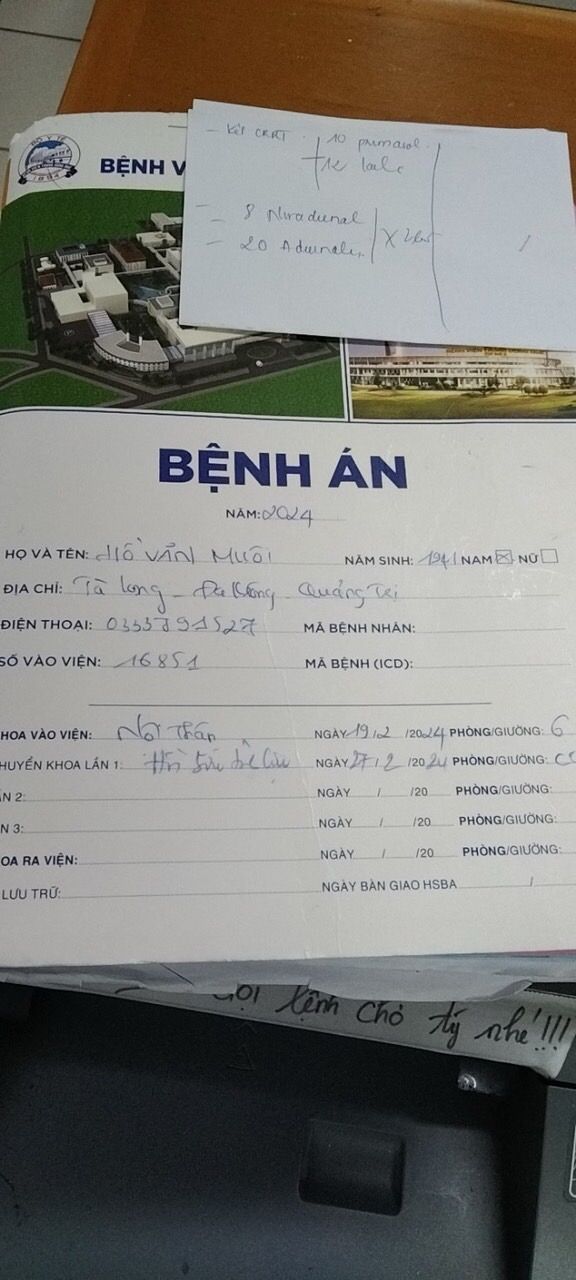 BỘ Y TẾ
1894
BỆNH V
- Kết CRRT. 10 primasol.
+ 12
- 8 Noradrenal
- 20 Adrenalin
X
BỆNH ÁN
NĂM: 2024
HỌ VÀ TÊN: HỒ VĂN MUÔI NĂM SINH: 1941 NAM ☒ NỮ ☐
ĐỊA CHỈ: Tà Long - Đa Krông - Quảng Trị
ĐIỆN THOẠI: MÃ BỆNH NHÂN:
SỐ VÀO VIỆN: 16851 MÃ BỆNH (ICD):
HOA VÀO VIỆN: Nội Thận NGÀY 19/2 /2024 PHÒNG/GIƯỜNG: 6
HUYỂN KHOA LẦN 1: Hồi sức NGÀY 27/2 /2024 PHÒNG/GIƯỜNG: CC
N 2: NGÀY / /20 PHÒNG/GIƯỜNG:
N 3: NGÀY / /20 PHÒNG/GIƯỜNG:
OA RA VIỆN: NGÀY / /20 PHÒNG/GIƯỜNG:
LƯU TRỮ: NGÀY BÀN GIAO HSBA /
lệnh chờ tý nhé!!!